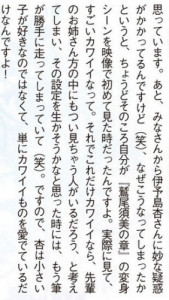 思っています。あと、みなさんから伊予島杏さんに妙な疑惑
がかかってるんですけど(笑)、なぜこうなってしまったか
というと、ちょうどそのころ自分が『鷲尾須美の章』の変身
シーンを映像で初めて見た時だったんですよ。実際に見て、
すごいカワイイなって。それでこれだけカワイイなら、先輩
のお姉さん方の中にもつい見ちゃう人がいるだろう、と考え
てしまい、その設定を生かそうかなと思った時には、もう筆
が勝手に走ってしまっていて(笑)。ですので、杏は小さい
子が好きなのではなくて、単にカワイイものを愛でているだ
けなんですよ!